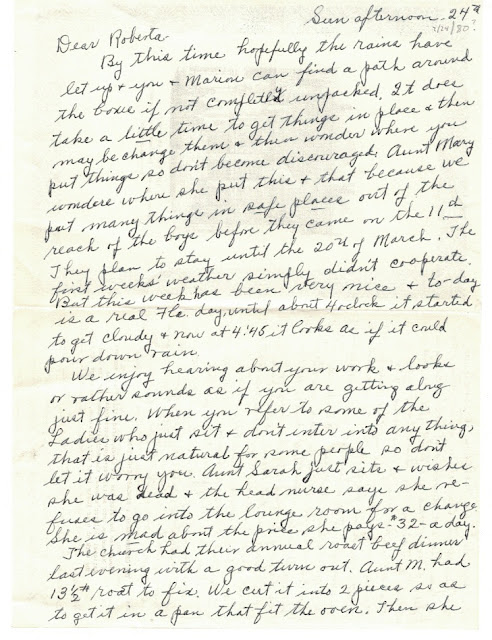 Sun afternoon - 24th
2/24/80?
Dear Roberta -
By this time hopefully the rains have
let up + you + Marion can find a path around
the boxes if not completely unpacked. It does
take a little time to get things in place + then
may be change them + then wonder where you
put things so don't become discouraged. Aunt Mary
wonders where she put this + that because we
put many things in safe places out of the
reach of the boys before they came on the 11th
They plan to stay until the 20th of March. The
first weeks' weather simply didn't cooperate.
But this week has been very nice + to-day
is a real Fla. day, until about 4 oclock it started
to get cloudy + now at 4:45 it looks as if it could
pour down rain.
We enjoy hearing about your work + looks
or rather sounds as if you are getting along
just fine. When you refer to some of the
Ladies who just sit + don't enter into any thing,
that is just natural for some people so don't
let it worry you. Aunt Sarah just sits + wishes
she was dead + the head nurse says she re-
fuses to go into the lounge room for a change.
She is mad about the price she pays - $32 - a day.
The church had their annual roast beef dinner
last evening with a good turn out. Aunt M. had
13½# roat to fix. We cut it into 2 pieces so as
to get it in a pan that fit the oven. Then she